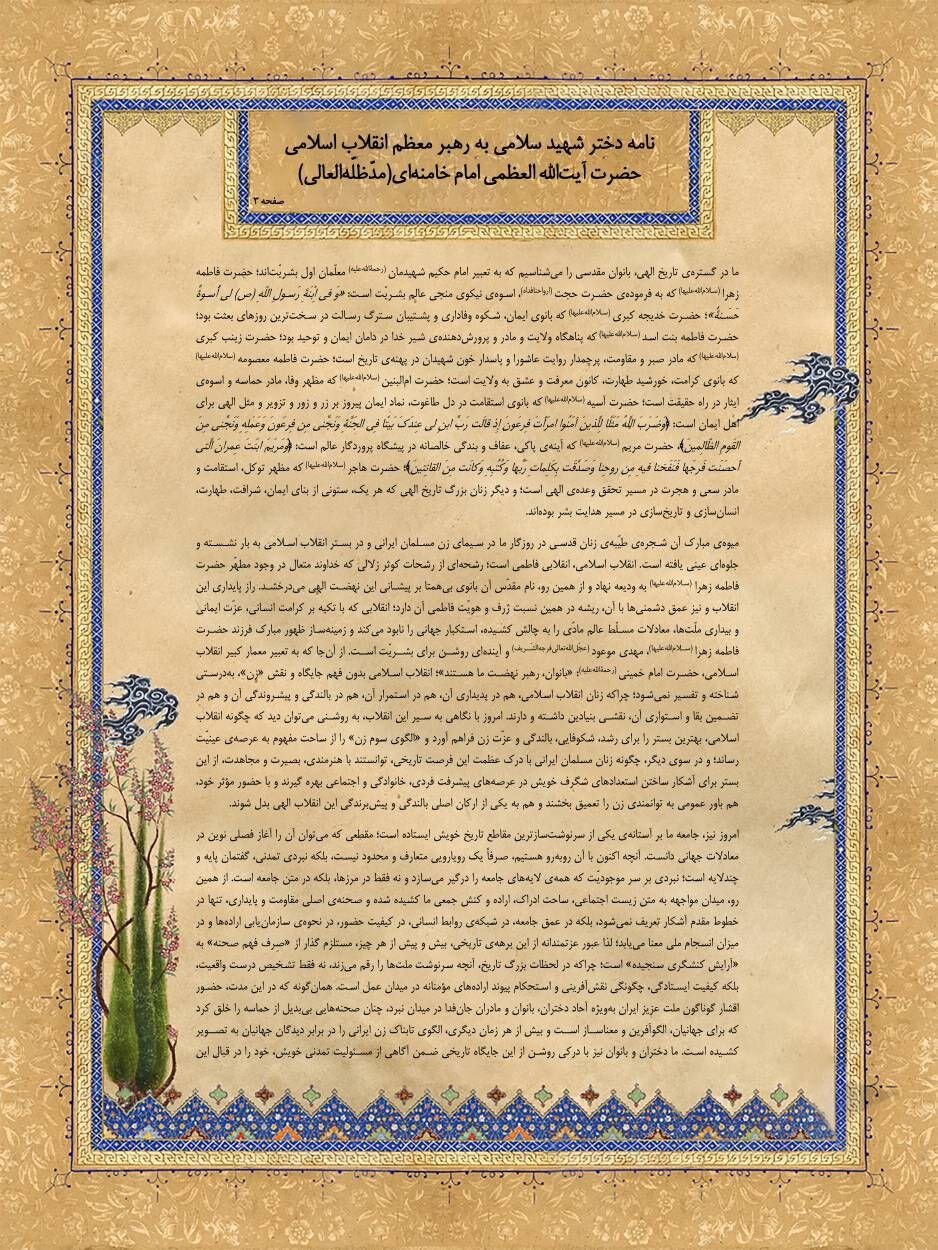 نامه دختر شهید سلامی به رهبر معظم انقلاب اسلامی
حضرت آیت‌الله العظمی امام خامنه‌ای(مدّظلّه‌العالی)
صفحه ۳
ما در گستره‌ی تاریخ الهی، بانوان مقدسی را می‌شناسیم که به تعبیر امام حکیم شهیدمان (رحمةالله‌علیه) معلّمان اول بشریّت‌اند؛ حضرت فاطمه
زهرا (سلام‌الله‌علیها) که به فرموده‌ی حضرت حجت (ارواحنافداه)، اسوه‌ی نیکوی منجی عالم بشریّت است: «وَ فی اِبنَةِ رَسولِ اللهِ (ص) لی اُسوةٌ
حَسَنةٌ»؛ حضرت خدیجه کبری (سلام‌الله‌علیها) که بانوی ایمان، شکوه وفاداری و پشتیبان سترگ رسالت در سخت‌ترین روزهای بعثت بود؛
حضرت فاطمه بنت اسد (سلام‌الله‌علیها) که پناهگاه ولایت و مادر و پرورش‌دهنده‌ی شیر خدا در دامان ایمان و توحید بود؛ حضرت زینب کبری
(سلام‌الله‌علیها) که مادر صبر و مقاومت، پرچمدار روایت عاشورا و پاسدار خون شهیدان در پهنه‌ی تاریخ است؛ حضرت فاطمه معصومه (سلام‌الله‌علیها)
که بانوی کرامت، خورشید طهارت، کانون معرفت و عشق به ولایت است؛ حضرت ام‌البنین (سلام‌الله‌علیها) که مظهر وفا، مادر حماسه و اسوه‌ی
ایثار در راه حقیقت است؛ حضرت آسیه (سلام‌الله‌علیها) که بانوی استقامت در دل طاغوت، نماد ایمان پیروز بر زر و زور و تزویر و مثل الهی برای
اهل ایمان است؛ ﴿وَضَرَبَ اللَّهُ مَثَلًا لِلَّذینَ آمَنُوا امرَأَتَ فِرعَونَ إِذ قالَت رَبِّ ابنِ لی عِندَکَ بَیتًا فِی الجَنَّةِ وَنَجِّنی مِن فِرعَونَ وَعَمَلِهِ وَنَجِّنی مِنَ
القَومِ الظّالِمینَ﴾، حضرت مریم (سلام‌الله‌علیها) که آینه‌ی پاکی، عفاف و بندگی خالصانه در پیشگاه پروردگار عالم است؛ ﴿وَمَریَمَ ابنَتَ عِمرانَ الَّتی
أَحصَنَت فَرجَها فَنَفَخنا فیهِ مِن روحِنا وَصَدَّقَت بِکَلِماتِ رَبِّها وَکُتُبِهِ وَکانَت مِنَ القانِتینَ﴾؛ حضرت هاجر (سلام‌الله‌علیها) که مظهر توکل، استقامت و
مادر سعی و هجرت در مسیر تحقق وعده‌ی الهی است؛ و دیگر زنان بزرگ تاریخ الهی که هر یک، ستونی از بنای ایمان، شرافت، طهارت،
انسان‌سازی و تاریخ‌سازی در مسیر هدایت بشر بوده‌اند.
میوه‌ی مبارک آن شجره‌ی طیّبه‌ی زنان قدسی در روزگار ما در سیمای زن مسلمان ایرانی و در بستر انقلاب اسلامی به بار نشسته و
جلوه‌ای عینی یافته است. انقلاب اسلامی، انقلابی فاطمی است؛ رشحه‌ای از رشحات کوثر زلالی که خداوند متعال در وجود مطهّر حضرت
فاطمه زهرا (سلام‌الله‌علیها) به ودیعه نهاد و از همین رو، نام مقدّس آن بانوی بی‌همتا بر پیشانی این نهضت الهی می‌درخشد. راز پایداری این
انقلاب و نیز عمق دشمنی‌ها با آن، ریشه در همین نسبت ژرف و هویّت فاطمی آن دارد؛ انقلابی که با تکیه بر کرامت انسانی، عزّت ایمانی
و بیداری ملّت‌ها، معادلات مسلّط عالم مادّی را به چالش کشیده، استکبار جهانی را نابود می‌کند و زمینه‌ساز ظهور مبارک فرزند حضرت
فاطمه زهرا (سلام‌الله‌علیها)، مهدی موعود (عجل‌الله‌تعالی‌فرجه‌الشریف) و آینده‌ای روشن برای بشریّت است. از آن‌جا که به تعبیر معمار کبیر انقلاب
اسلامی، حضرت امام خمینی (رحمةالله‌علیه): «بانوان، رهبر نهضت ما هستند»؛ انقلاب اسلامی بدون فهم جایگاه و نقش «زن»، به‌درستی
شناخته و تفسیر نمی‌شود؛ چراکه زنان انقلاب اسلامی، هم در پدیداری آن، هم در استمرار آن، هم در بالندگی و پیشروندگی آن و هم در
تضمین بقا و استواری آن، نقشی بنیادین داشته و دارند. امروز با نگاهی به سیر این انقلاب، به روشنی می‌توان دید که چگونه انقلاب
اسلامی، بهترین بستر را برای رشد، شکوفایی، بالندگی و عزّت زن فراهم آورد و «الگوی سوم زن» را از ساحت مفهوم به عرصه‌ی عینیّت
رساند؛ و در سوی دیگر، چگونه زنان مسلمان ایرانی با درک عظمت این فرصت تاریخی، توانستند با هنرمندی، بصیرت و مجاهدت، از این
بستر برای آشکار ساختن استعدادهای شگرف خویش در عرصه‌های پیشرفت فردی، خانوادگی و اجتماعی بهره گیرند و با حضور مؤثر خود،
هم باور عمومی به توانمندی زن را تعمیق بخشند و هم به یکی از ارکان اصلی بالندگی و پیش‌برندگی این انقلاب الهی بدل شوند.
امروز نیز، جامعه ما بر آستانه‌ی یکی از سرنوشت‌سازترین مقاطع تاریخ خویش ایستاده است؛ مقطعی که می‌توان آن را آغاز فصلی نوین در
معادلات جهانی دانست. آنچه اکنون با آن روبه‌رو هستیم، صرفاً یک رویارویی متعارف و محدود نیست، بلکه نبردی تمدنی، گفتمان پایه و
چندلایه است؛ نبردی بر سر موجودیّت که همه‌ی لایه‌های جامعه را درگیر می‌سازد و نه فقط در مرزها، بلکه در متن جامعه است. از همین
رو، میدان مواجهه به متن زیست اجتماعی، ساحت ادراک، اراده و کنش جمعی ما کشیده شده و صحنه‌ی اصلی مقاومت و پایداری، تنها در
خطوط مقدم آشکار تعریف نمی‌شود، بلکه در عمق جامعه، در شبکه‌ی روابط انسانی، در کیفیت حضور، در نحوه‌ی سازمان‌یابی اراده‌ها و در
میزان انسجام ملی معنا می‌یابد؛ لذا عبور عزتمندانه از این برهه‌ی تاریخی، بیش و پیش از هر چیز، مستلزم گذار از «صِرف فهم صحنه» به
«آرایش کنشگری سنجیده» است؛ چراکه در لحظات بزرگ تاریخ، آنچه سرنوشت ملت‌ها را رقم می‌زند، نه فقط تشخیص درست واقعیت،
بلکه کیفیت ایستادگی، چگونگی نقش‌آفرینی و استحکام پیوند اراده‌های مؤمنانه در میدان عمل است. همان‌گونه که در این مدت، حضور
اقشار گوناگون ملت عزیز ایران به‌ویژه آحاد دختران، بانوان و مادران جان‌فدا در میدان نبرد، چنان صحنه‌هایی بی‌بدیل از حماسه را خلق کرد
که برای جهانیان، الگوآفرین و معناساز است و بیش از هر زمان دیگری، الگوی تابناک زن ایرانی را در برابر دیدگان جهانیان به تصویر
کشیده است. ما دختران و بانوان نیز با درکی روشن از این جایگاه تاریخی ضمن آگاهی از مسئولیت تمدنی خویش، خود را در قبال این